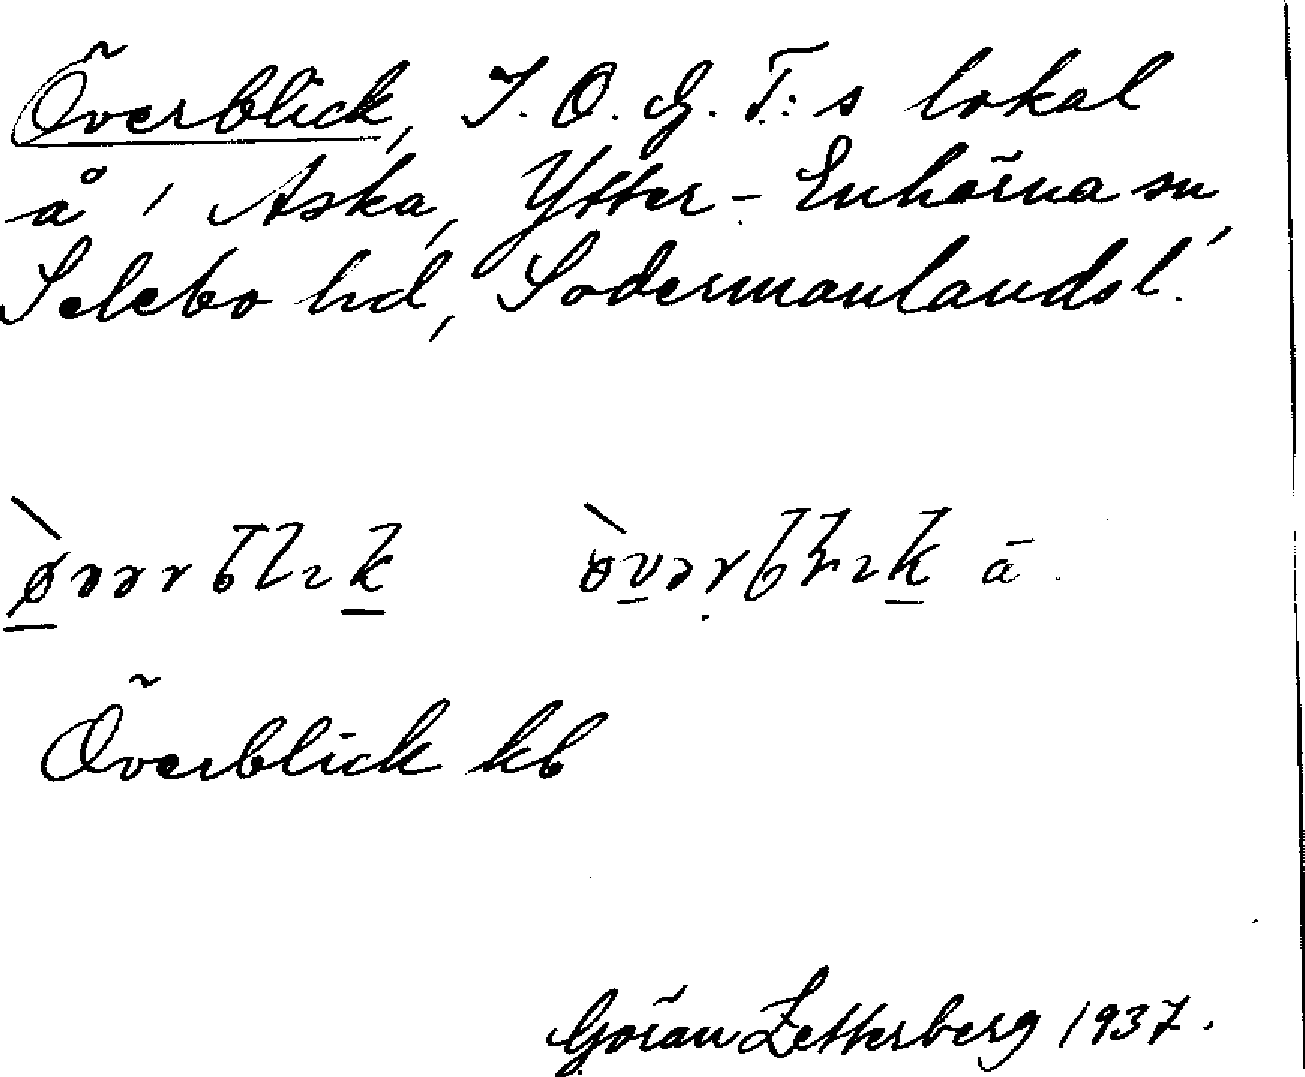 Överblick, I.O.G.T:s lokal
å 1 Aska, Ytter-Enhörna sn,
Selebo hd, Södermanlands l.
Överblick kb
Göran Zetterberg 1937.